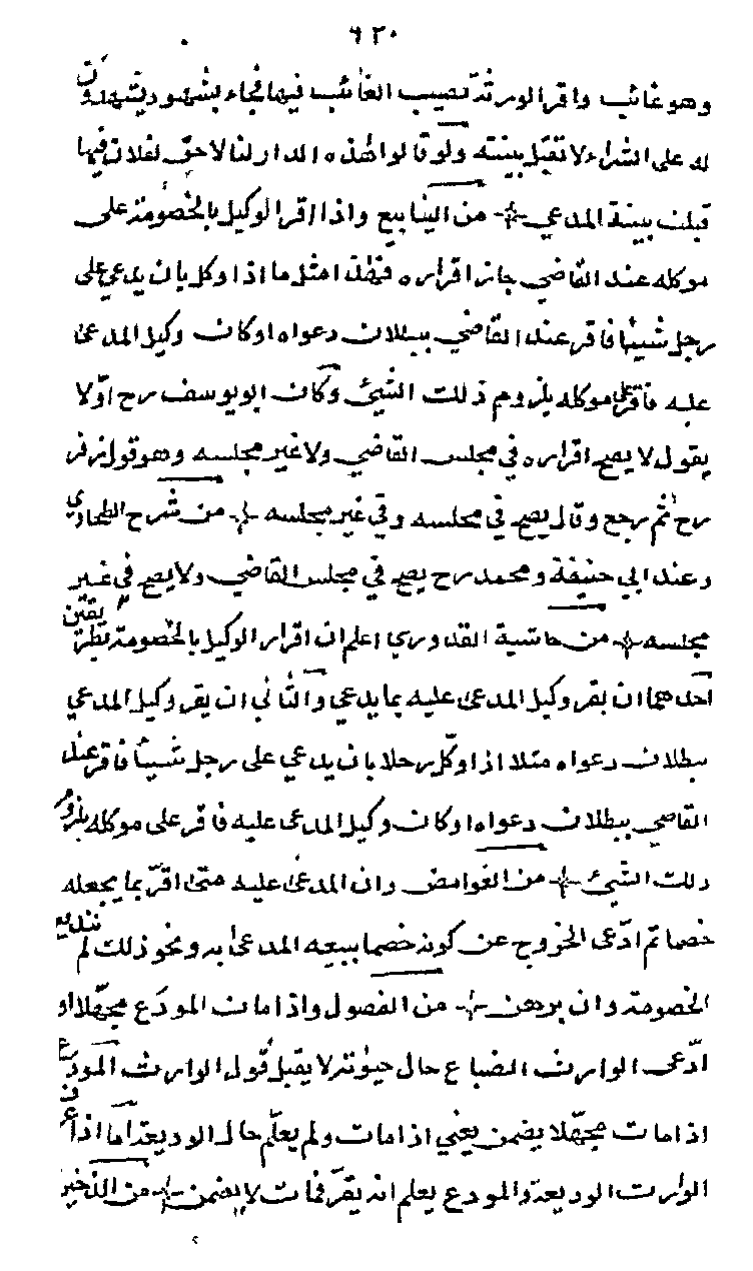 ٦٢٠
وهو غائب واقر الورثة نصيب الغائب فيها فجاء بشهود يشهدون
له على الشراء لا تقبل بينته ولو قالوا هذه الدار لنا لا حق لفلان فيها
قبلت بينة المدعي من الينابيع واذا اقر الوكيل بالخصومة على
موكله عند القاضي جاز اقراره فهذا مثل ما اذا وكل بان يدعي على
رجل شيئا فاقر عند القاضي ببطلان دعواه او كان وكيل المدعى
عليه فاقر على موكله بلزوم ذلك الشيئ وكان ابو يوسف رح اولا
يقول لا يصح اقراره في مجلس القاضي ولا غير مجلسه وهو قول زفر
رح ثم رجع وقال يصح في مجلسه وفي غير مجلسه من شرح الطحاوي
وعند ابي حنيفة ومحمد رح يصح في مجلس القاضي ولا يصح في غير
مجلسه من حاشية القدوري اعلم ان اقرار الوكيل بالخصومة بطريقين
احدهما ان يقر وكيل المدعى عليه بما يدعي والثاني ان يقر وكيل المدعي
ببطلان دعواه مثلا اذا وكل رجلا بان يدعي على رجل شيئا فاقر عند
القاضي ببطلان دعواه او كان وكيل المدعى عليه فاقر على موكله بلزوم
ذلك الشيئ من الغوامض وان المدعى عليه متى اقر بما يجعله
خصما ثم ادعى الخروج عن كونه خصما ببيعه المدعى به ونحو ذلك لم
الخصومة وان برهن من الفصول واذا مات المودع مجهلا او
ادعى الوارث الضياع حال حيوته لا يقبل قول الوارث المودع
اذا مات مجهلا يضمن يعني اذا مات ولم يعلم حال الوديعة اما اذا
الوارث الوديعة والمودع يعلم انه يقر فمات لا يضمن من الذخيرة